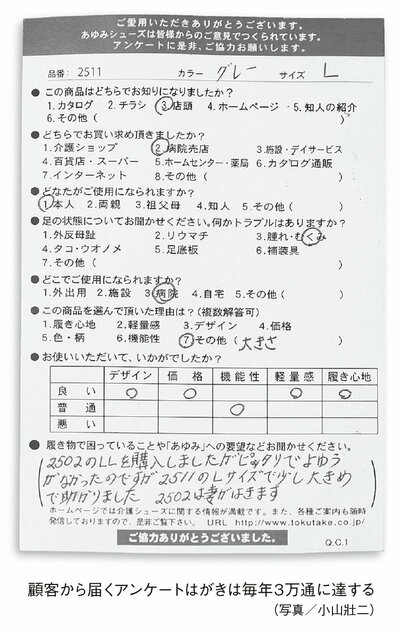 ご愛用いただきありがとうございます。
あゆみシューズは皆様からのご意見でつくられています。
アンケートに是非、ご協力お願いします。
品番: 2511 カラー グレー サイズ L
● この商品はどちらでお知りになりましたか?
1.カタログ 2.チラシ 3.店頭 4.ホームページ 5.知人の紹介
6.その他( )
● どちらでお買い求め頂きましたか?
1.介護ショップ 2.病院売店 3.施設・デイサービス
4.百貨店・スーパー 5.ホームセンター・薬局 6.カタログ通販
7.インターネット 8.その他( )
● どなたがご使用になられますか?
1.本人 2.両親 3.祖父母 4.知人 5.その他( )
●足の状態についてお聞かせください。何かトラブルはありますか?
1.外反母趾 2.リウマチ 3.腫れ・むくみ
4.タコ・ウオノメ 5.足底板 6.補装具
7.その他( )
● どこでご使用になられますか?
1.外出用 2.施設 3.病院 4.自宅 5.その他( )
● この商品を選んで頂いた理由は?(複数解答可)
1.履き心地 2.軽量感 3.デザイン 4.価格
5.色・柄 6.機能性 7.その他(大きさ )
● お使いいただいて、いかがでしたか?
デザイン 価格 機能性 軽量感 履き心地
良い ○ ○ ○ ○
普通 ○
悪い
● 履き物で困っていることや「あゆみ」への要望などお聞かせください。
(2502のLLを購入しましたがピッタリでよゆう
がなかったのですが2511のLサイズで少し大きめ
で助かりました 2502は妻がはきます)
ホームページでは介護シューズに関する情報が満載です。また、各種ご案内も随時
発信しておりますので、是非ご覧下さい。 URL http://www.tokutake.co.jp/
ご協力ありがとうございました。
Q.C.1
顧客から届くアンケートはがきは毎年3万通に達する
(写真/小山壯二)